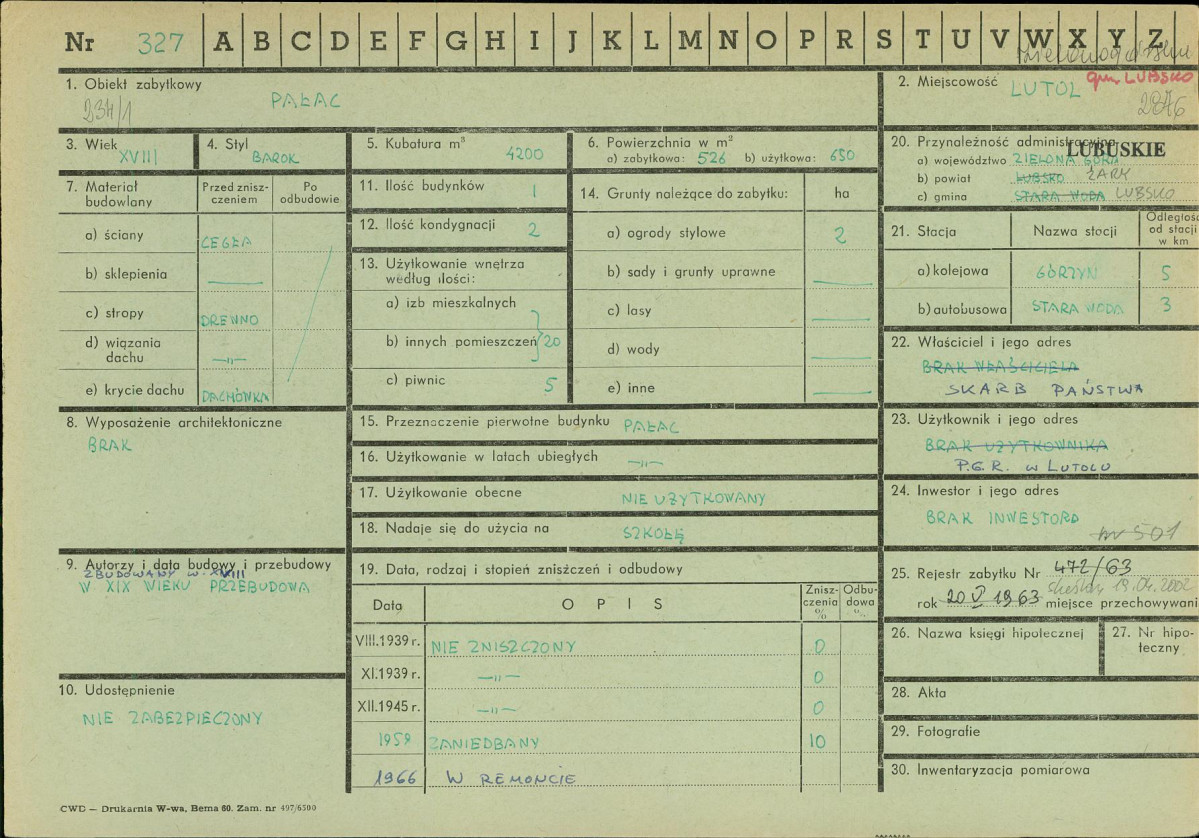 Nr 327 A B C D E F G H I J K L M N O P R S T U V W X Y Z
1. Obiekt zabytkowy
PAŁAC
234/1
2. Miejscowość
LUTOL gm. LUBSKO
2876
3. Wiek
XVIII
4. Styl
BAROK
5. Kubatura m³
4200
6. Powierzchnia w m²
a) zabytkowa: 526 b) użytkowa: 650
20. Przynależność administracyjna
LUBUSKIE
a) województwo ZIELONA GÓRA
b) powiat LUBSKO ŻARY
c) gmina STARA WODA LUBSKO
7. Materiał budowlany
Przed zniszczeniem
Po odbudowie
a) ściany CEGŁA
b) sklepienia —
c) stropy DREWNO
d) wiązania dachu —„—
e) krycie dachu DACHÓWKA
11. Ilość budynków 1
12. Ilość kondygnacji 2
13. Użytkowanie wnętrza według ilości:
a) izb mieszkalnych
b) innych pomieszczeń 20
c) piwnic 5
14. Grunty należące do zabytku: ha
a) ogrody stylowe 2
b) sady i grunty uprawne —
c) lasy —
d) wody —
e) inne —
21. Stacja Nazwa stacji Odległość od stacji w km
a) kolejowa GÓRZYN 5
b) autobusowa STARA WODA 3
22. Właściciel i jego adres
BRAK WŁAŚCICIELA
SKARB PAŃSTWA
8. Wyposażenie architektoniczne
BRAK
15. Przeznaczenie pierwotne budynku PAŁAC
16. Użytkowanie w latach ubiegłych —„—
17. Użytkowanie obecne NIE UŻYTKOWANY
18. Nadaje się do użycia na SZKOŁĘ
23. Użytkownik i jego adres
BRAK UŻYTKOWNIKA
P.G.R. W LUTOLU
24. Inwestor i jego adres
BRAK INWESTORA
nr 501
9. Autorzy i data budowy i przebudowy
ZBUDOWANY W. XVIII
W XIX WIEKU PRZEBUDOWA
19. Data, rodzaj i stopień zniszczeń i odbudowy
Data OPIS Zniszczenia % Odbudowa %
VIII.1939 r. NIE ZNISZCZONY 0
XI.1939 r. —„— 0
XII.1945 r. —„— 0
1958 ZANIEDBANY 10
1966 W REMONCIE
25. Rejestr zabytku Nr 472/63
rok 20 V 1963 miejsce przechowywani
19.04.2002
10. Udostępnienie
NIE ZABEZPIECZONY
26. Nazwa księgi hipotecznej
27. Nr hipoteczny
28. Akta
29. Fotografie
30. Inwentaryzacja pomiarowa
CWD — Drukarnia W-wa, Bema 60. Zam. nr 497/6500